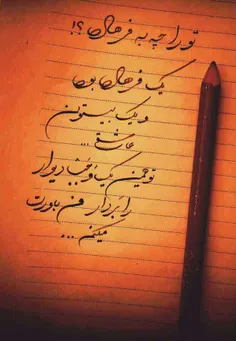 تو را چه به فرهاد؟!
یک فرهاد بود
و یک بیستون
عاشق...
تو همین یک وجب دیوار
را بردار من باورت
میکنم...